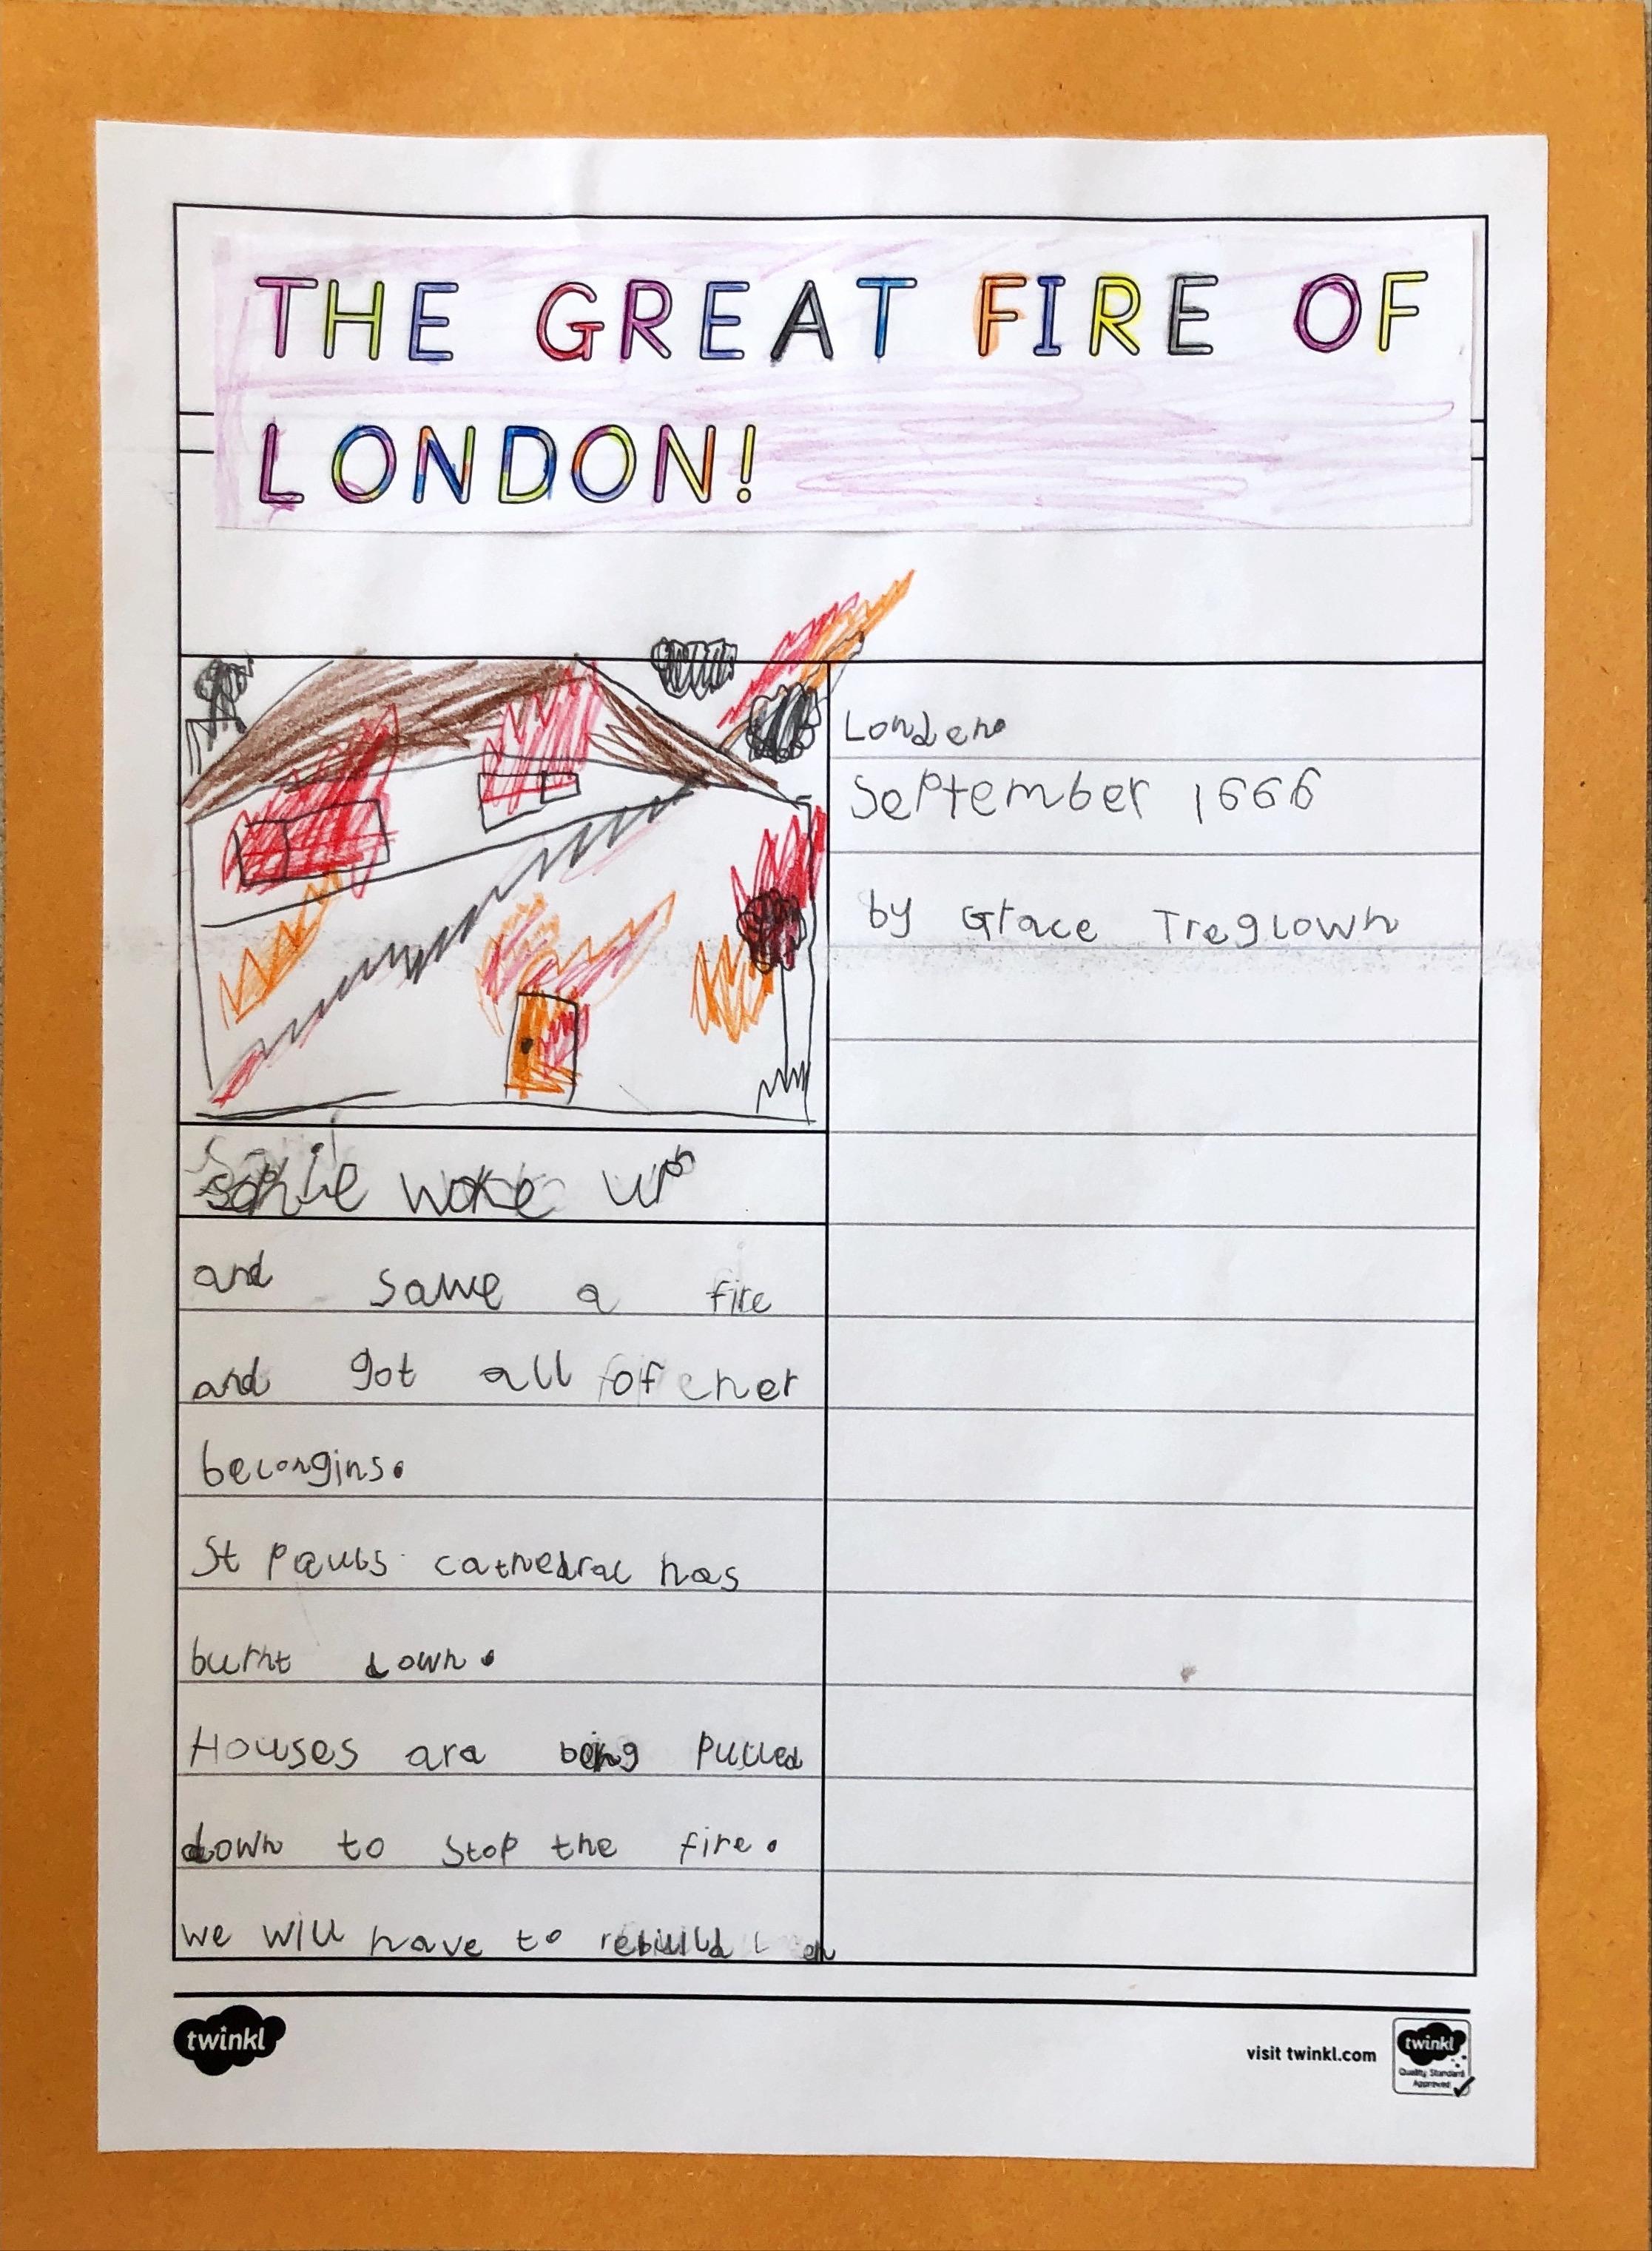 THE GREAT FIRE OF
LONDON!
woke up
and sawe a fire
and got all of her
belongins.
St Pauls cathedral has
burnt down.
Houses are being pulled
down to stop the fire.
we will have to rebuild
Londen.
September 1666
by Grace Treglown
twinkl
visit twinkl.com
twinkl
Quality Standard
Approved